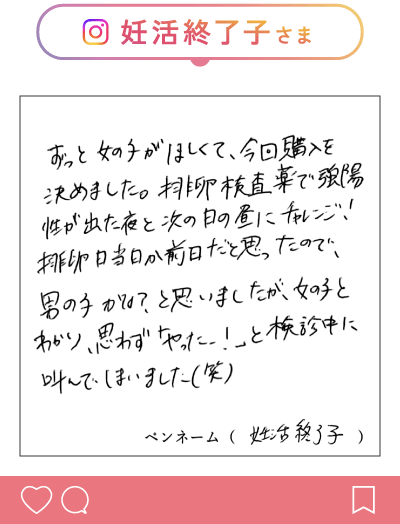 妊活終了子さま
ずっと女の子がほしくて、今回購入を
決めました。排卵検査薬で強陽
性が出た夜と次の日の昼にチャレンジ!
排卵日当日か前日だと思ったので、
男の子かな?と思いましたが、女の子と
わかり、思わず「やったー!」と検診中に
叫んでしまいました(笑)
ペンネーム ( 妊活終了子 )